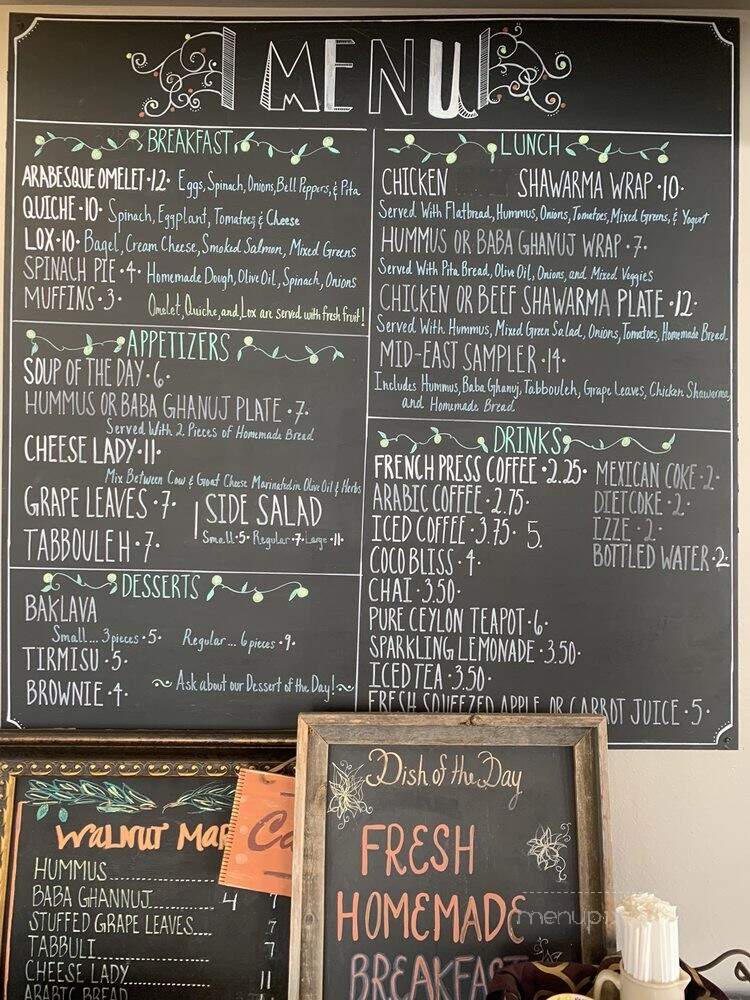 MENU
BREAKFAST
ARABESQUE OMELET · 12 · Eggs, Spinach, Onions, Bell Peppers, & Pita
QUICHE · 10 · Spinach, Eggplant, Tomatoes, & Cheese
LOX · 10 · Bagel, Cream Cheese, Smoked Salmon, Mixed Greens
SPINACH PIE · 4 · Homemade Dough, Olive Oil, Spinach, Onions
MUFFINS · 3 ·
Omelet, Quiche, and, Lox are served with fresh fruit!
APPETIZERS
SOUP OF THE DAY · 6 ·
HUMMUS OR BABA GHANUJ PLATE · 7 ·
Served With 2 Pieces of Homemade Bread
CHEESE LADY · 11 ·
Mix Between Cow & Goat Cheese Marinated in Olive Oil & Herbs
GRAPE LEAVES · 7 ·
TABBOULEH · 7 ·
SIDE SALAD
Small · 5 · Regular · 7 · Large · 11 ·
DESSERTS
BAKLAVA
Small... 3 pieces · 5 · Regular... 6 pieces · 9 ·
TIRMISU · 5 ·
BROWNIE · 4 ·
~ Ask about our Dessert of the Day! ~
LUNCH
CHICKEN SHAWARMA WRAP · 10 ·
Served With Flatbread, Hummus, Onions, Tomatoes, Mixed Greens, & Yogurt
HUMMUS OR BABA GHANUJ WRAP · 7 ·
Served With Pita Bread, Olive Oil, Onions, and Mixed Veggies
CHICKEN OR BEEF SHAWARMA PLATE · 12 ·
Served With Hummus, Mixed Green Salad, Onions, Tomatoes, Homemade Bread.
MID-EAST SAMPLER · 14 ·
Includes Hummus, Baba Ghanuj, Tabbouleh, Grape Leaves, Chicken Shawarma,
and Homemade Bread.
DRINKS
FRENCH PRESS COFFEE · 2.25 ·
ARABIC COFFEE · 2.75 ·
ICED COFFEE · 3.75 · 5.
COCO BLISS · 4 ·
CHAI · 3.50 ·
PURE CEYLON TEAPOT · 6 ·
SPARKLING LEMONADE · 3.50 ·
ICED TEA · 3.50 ·
FRESH SQUEEZED APPLE OR CARROT JUICE · 5 ·
MEXICAN COKE · 2 ·
DIET COKE · 2 ·
IZZE · 2 ·
BOTTLED WATER · 2 ·
WALNUT MAR
HUMMUS
BABA GHANNUJ 4 7
STUFFED GRAPE LEAVES 7
TABBULI 7
CHEESE LADY 11
ARABIC BREAD
Ca
Dish of the Day
FRESH
HOMEMADE
BREAKFAST
menupix